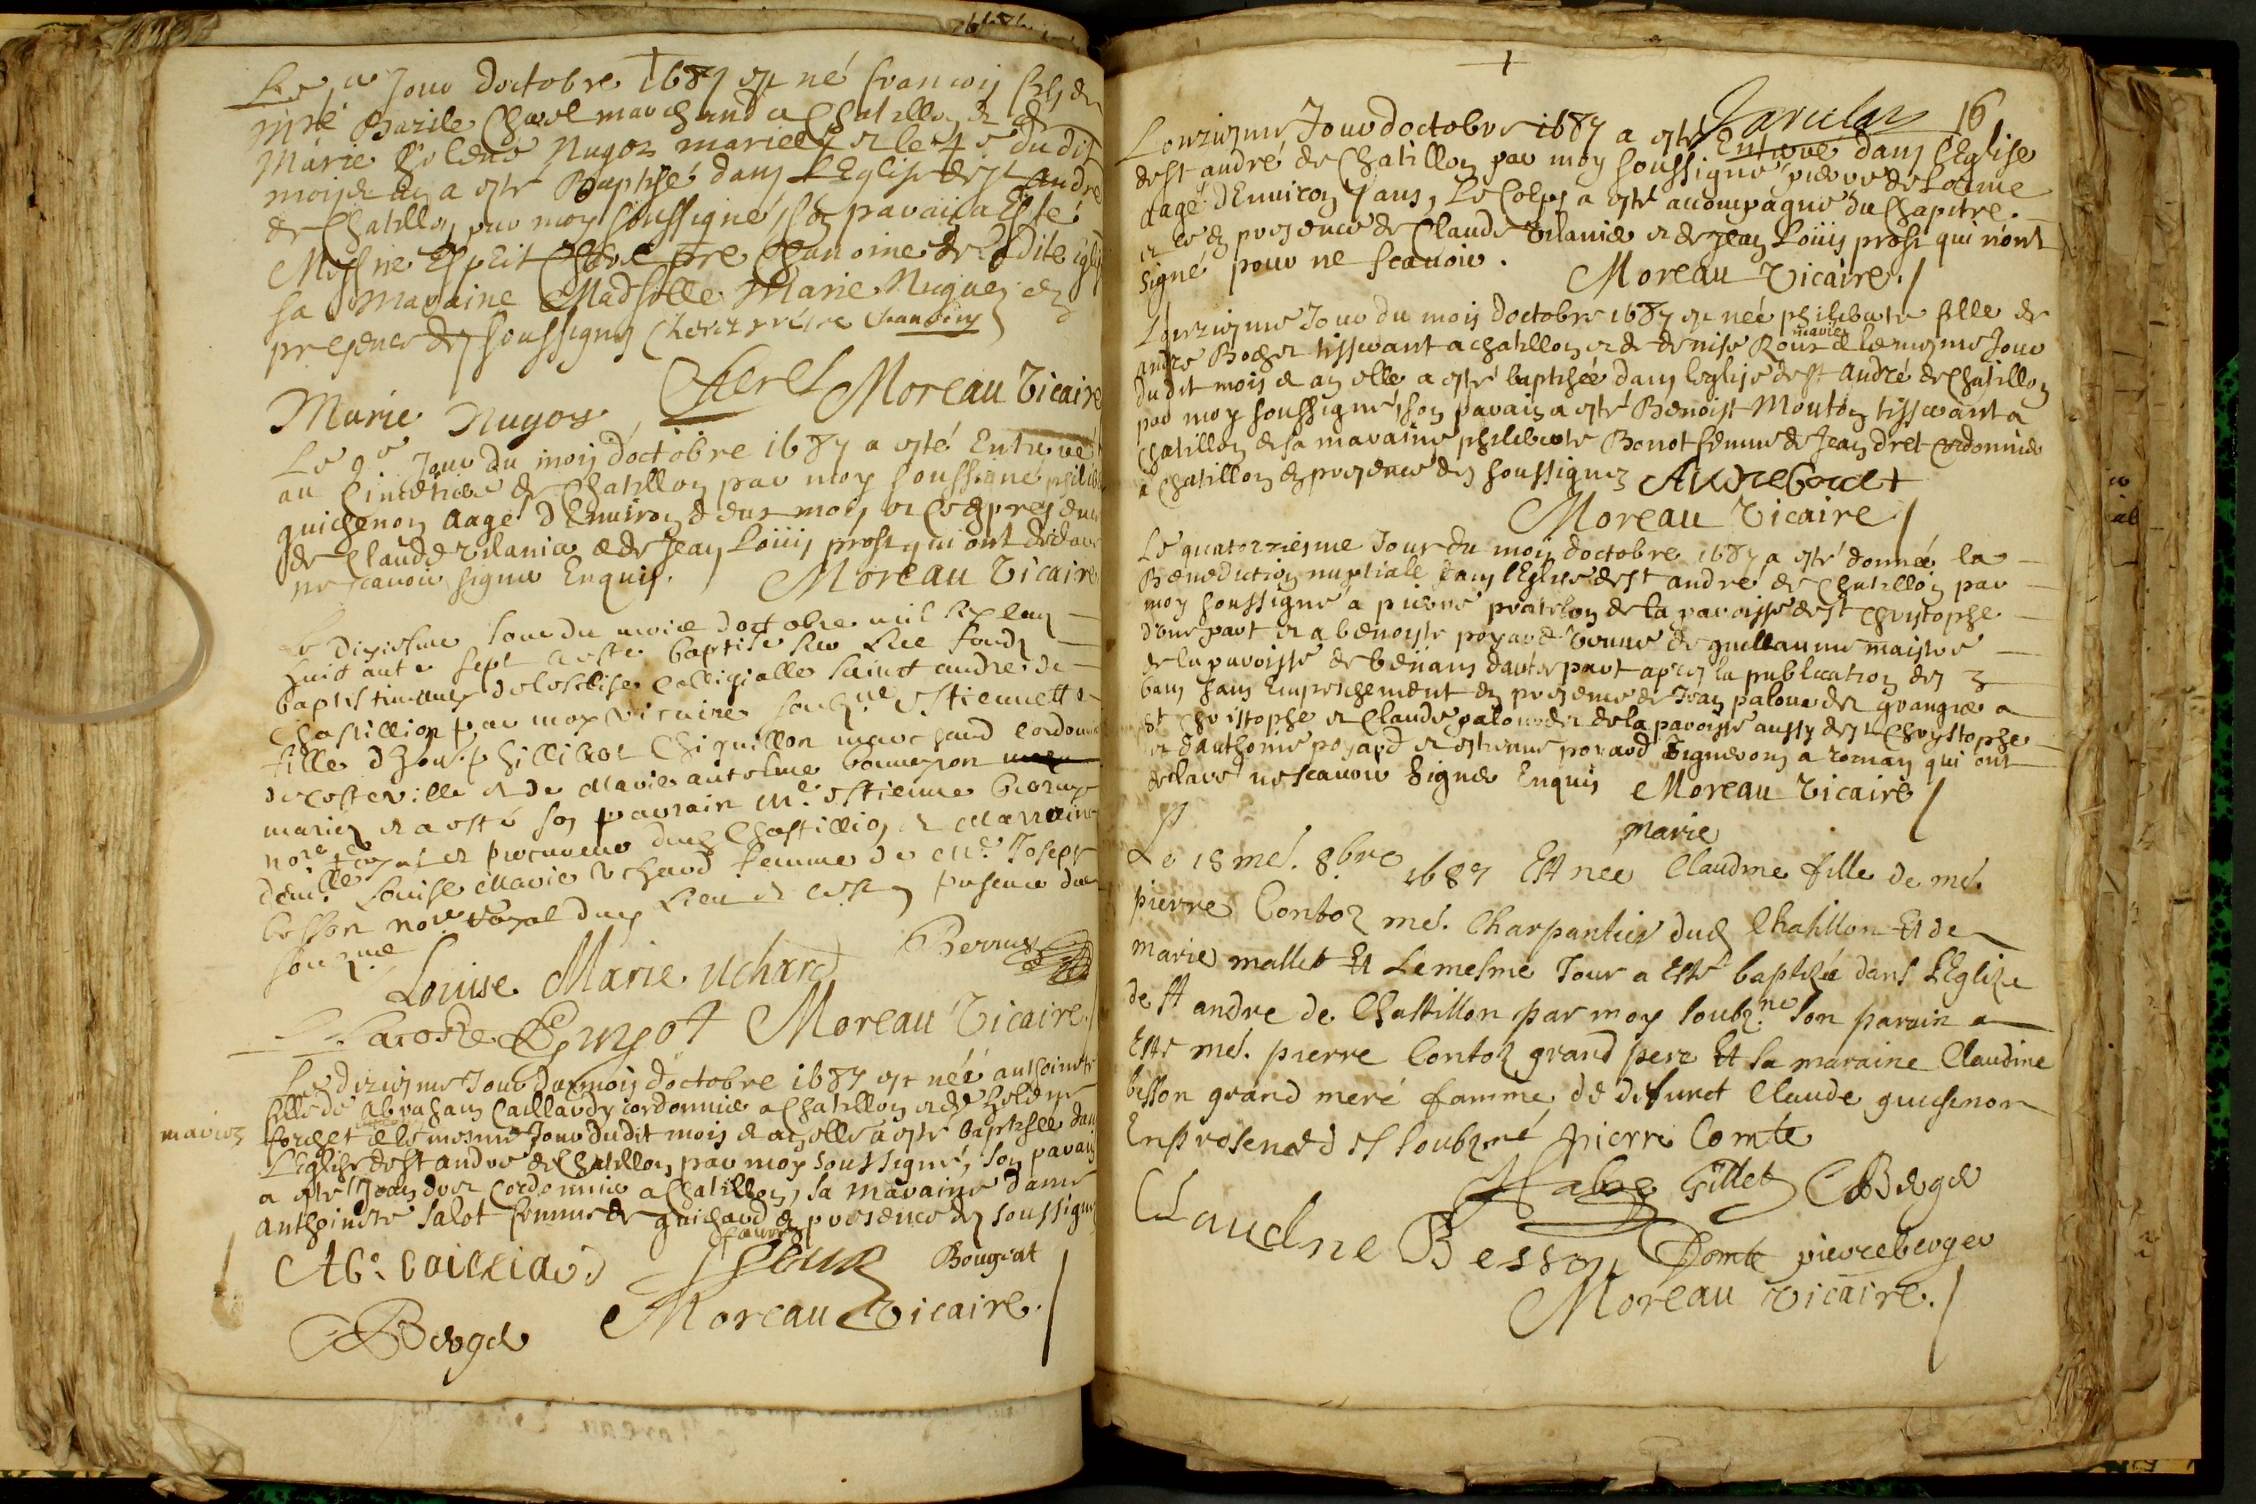 Jour doctobre 1687 est né francois fils de
mre Bazile Charel marchand a Chatillon et de
Marie heleine Nugoz mariez et le 4e du dit
mois et an a esté Baptisé dans L'Eglise de st andré
de Chatillon par moy soussigné, son parain a Esté
Messire Esprit Charel pre Chanoine de Ladite Eglise
sa maraine Madsolle Marie Nugue en
presence des soussignes
Charel Moreau Vicaire
Marie Nugoz
Le 9e Jour du mois doctobre 1687 a esté Enterré
au Cimetiere de Chatillon par moy soussigné
guichenon aagé d'Environ deux mois et ce En presence
de Claude Vilanie et de Jean Loüis prost qui ont declaré
ne scavoir signer Enquis. Moreau Vicaire
dixiesme Jour du mois doctobre mil six cens
huict ante sept a esté baptisé
baptistimaux de lesglise collegialle sainct andre de
Chastillion par moy vicaire soubzne estiennette
fille d'hon. phillibert Chiquillon marchand cordonnier
de ceste ville et de Marie antelme
mariez et a esté son parrain Me. estienne
nore royal et procureur dud Chastillion et Marraine
demlle Louise Marie Uchard femme de Me. Joseph
besson nore royal dud Lieu et ce En presence des
soubzne
Louise Marie Uchard
Moreau Vicaire.
Le dixiesme Jour du mois doctobre 1687 est néé anthoinette
fille de Abraham Caillard cordonnier a Chatillon et de
mariez
forchet et le mesme Jour dudit mois et an elle a esté baptisée dans
L'Eglise de st andre de Chatillon par moy soussigné, son parain
a esté Jean dret Cordonnier a Chatillon, sa maraine dame
anthoinette Salot femme de guichard En presence des soussignes
Bougrat
Moreau Vicaire.
Berger
16
Lonziesme Jour doctobre 1687 a esté Enterré dans L'Eglise
de st andré de Chatillon par moy soussigné, pierre de Lorme
aagé d'Environ 7 ans, Le Corps a esté acompagné du Chapitre.
et ce En presence de Claude Vilanie et de Jean Loüis prost qui n'ont
signé pour ne scavoir. Moreau Vicaire.
Lonziesme Jour du mois doctobre 1687 est néé philiberte fille de
mariez
andré Bocher tisserant a chatillon et de denise Roux et le mesme Jour
dudit mois et an elle a esté baptisée dans leglise de st André de Chatillon
par moy soussigné, son parain a esté Benoist Mouton tisserant a
Chatillon et sa maraine philiberte Bonot femme de Jean dret Cordonnier
a Chatillon En presence des soussignez
Moreau Vicaire
Le quatorziesme Jour du mois doctobre 1687 a esté donnée la
Benediction nuptiale dans l'Eglise de st andré de Chatillon par
moy soussigné a pierre de la paroisse de st Christophe
d'une part et a benoiste poyard veuve de guillaume maistre
de la paroisse de benans dautre part apres la publication des 3
bans sans Empeschement En presence de Jean a
st Christophe et Claude de la paroisse aussy de st Christophe
et d'anthoine poyard et estienne poyard Vignerons a romans qui ont
declaré ne scavoir signer Enquis Moreau Vicaire
marie
Le 18 me. 8bre 1687 Est nee Claudine fille de me.
pierre Contoz me. Charpantier dud Chatillon Et de
marie mallet Et Le mesme Jour a Esté baptizée dans L'Eglize
de st andre de Chastillon par moy soubzne son parain a
Esté me. pierre Contoz grand pere Et sa maraine Claudine
besson grand meré famme de defunct Claude guichenon
En presence d soubzné pierre Comte
Gillet Berger
Claudine Besson Comte pierre berger
Moreau Vicaire.